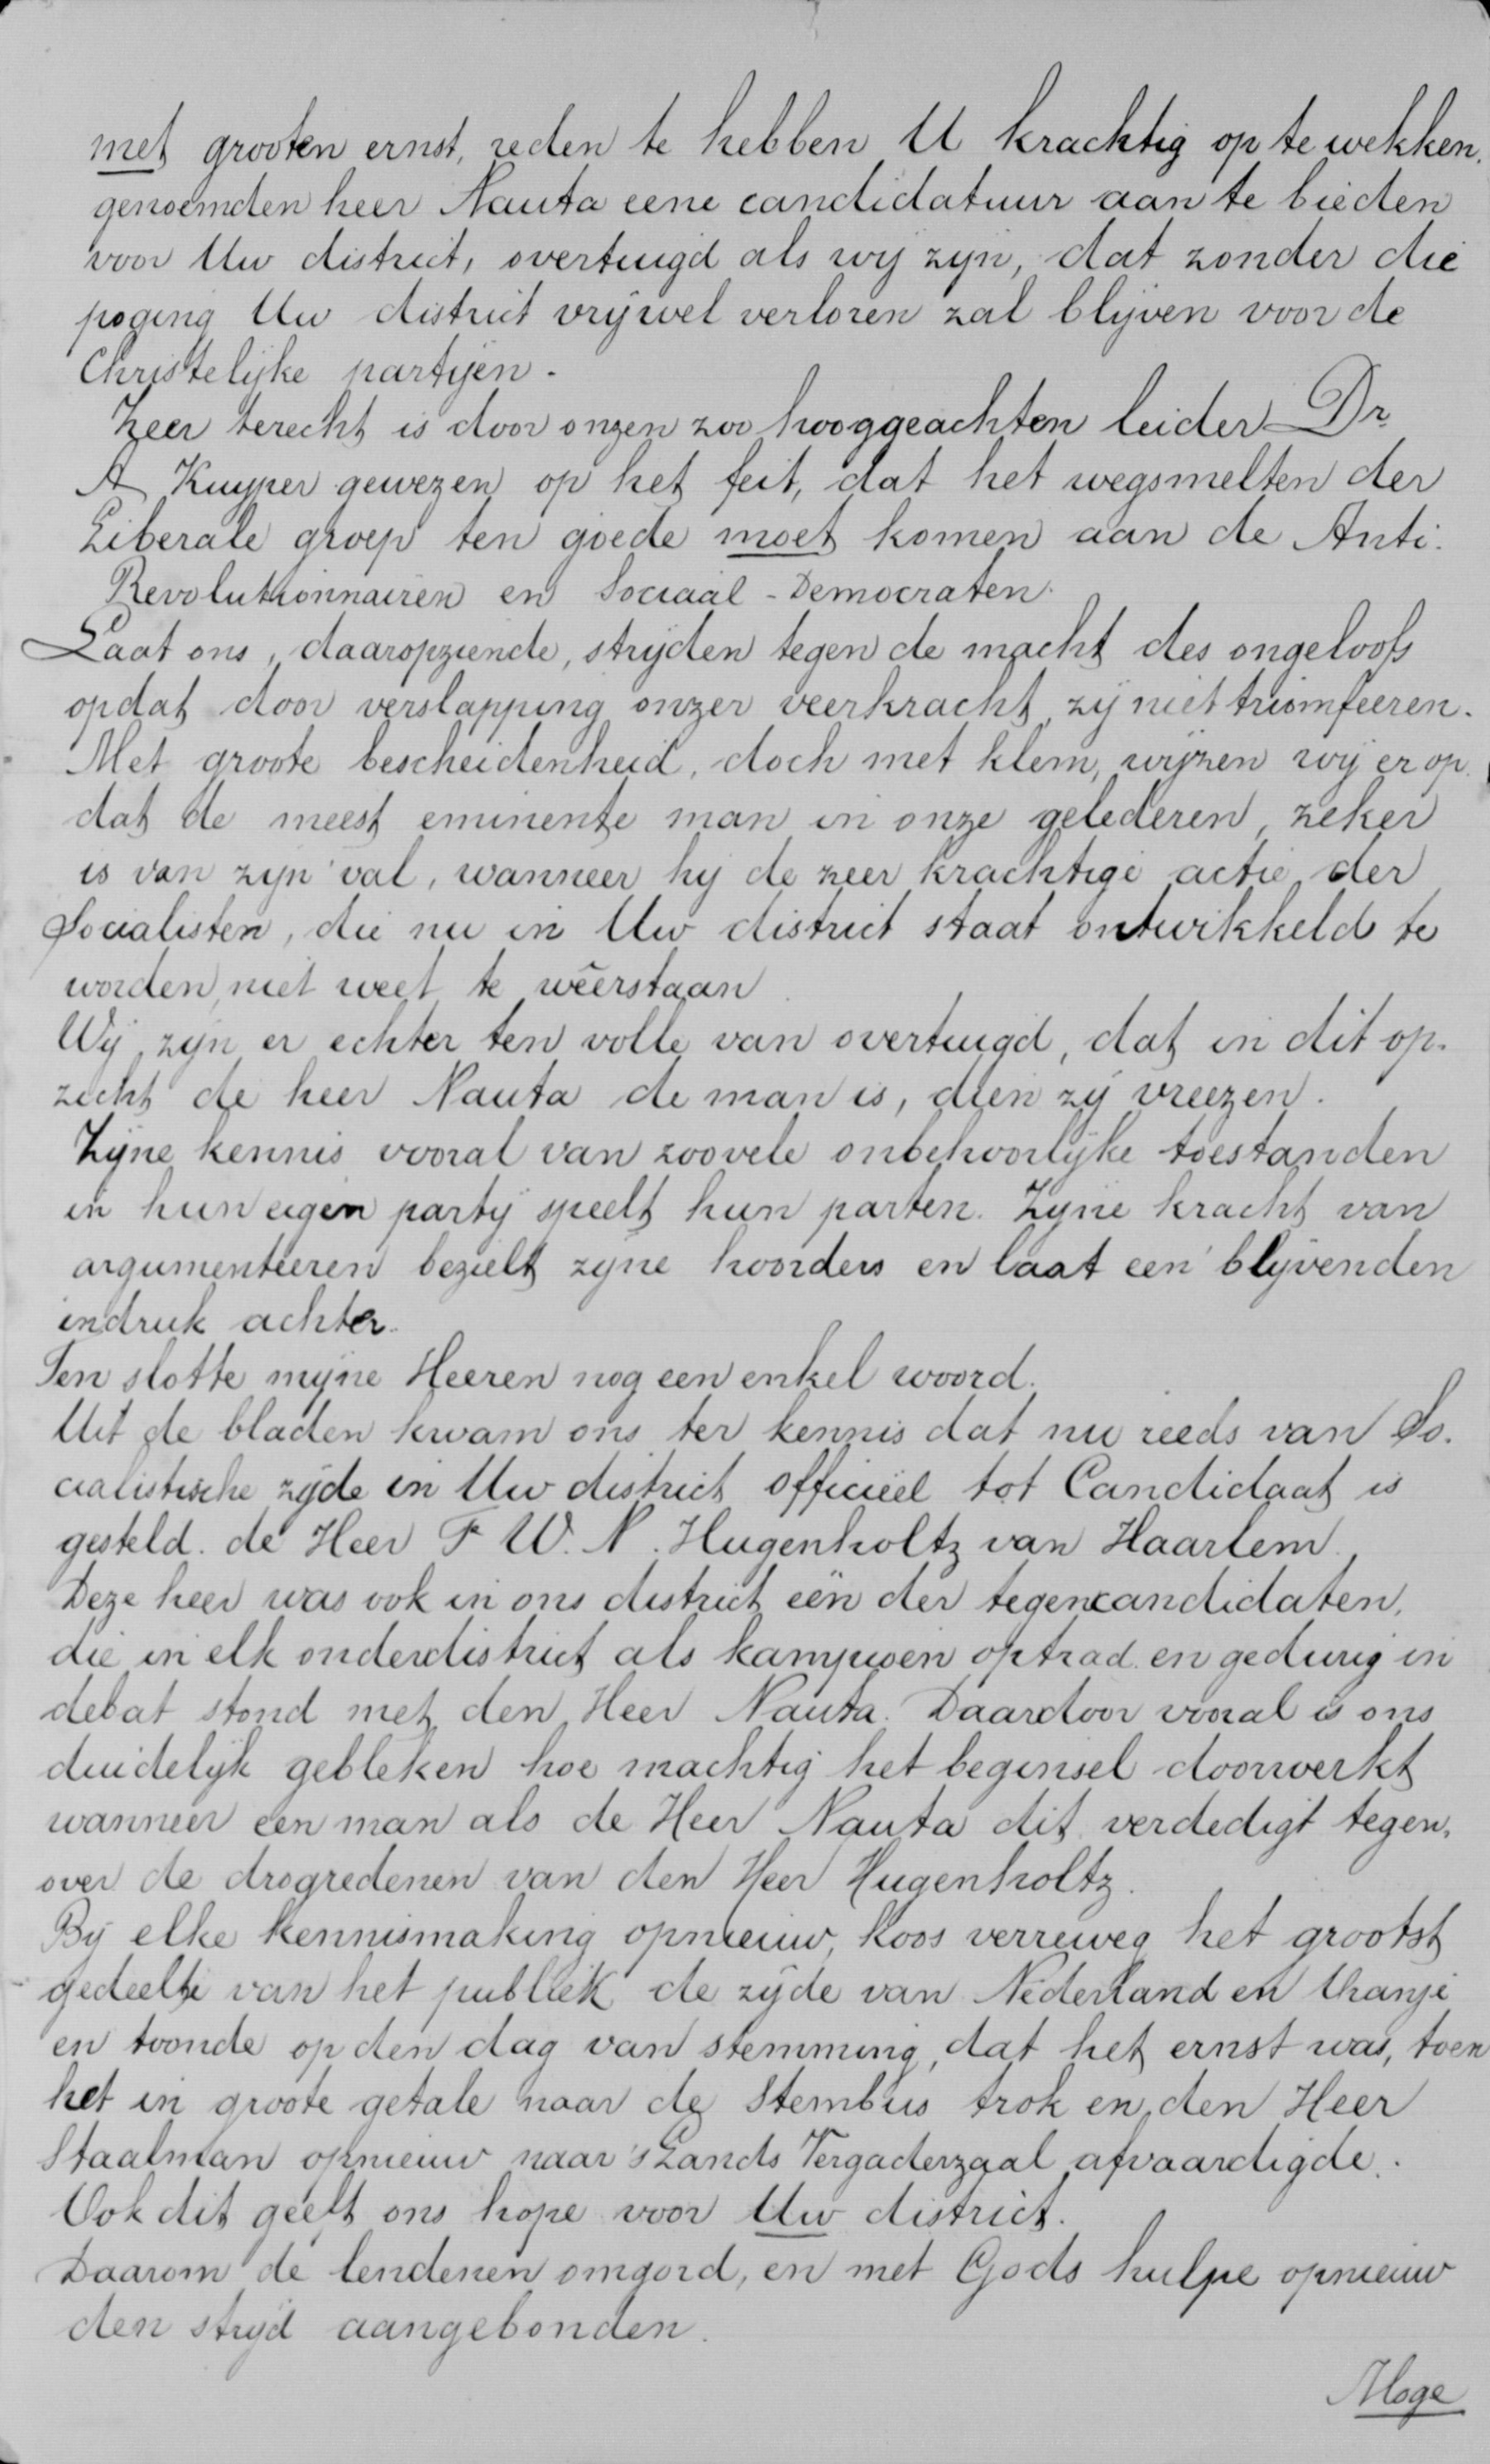 met grooten ernst, reden te hebben U krachtig op te wekken,
genoemden heer Nauta eene candidatuur aan te bieden
voor Uw district, overtuigd als wij zijn, dat zonder die
poging Uw district vrijwel verloren zal blijven voor de
Christelijke partijen.
Zeer terecht is door onzen zoo hooggeachten leider Dr.
A Kuyper gewezen op het feit, dat het wegsmelten der
Liberale groep ten goede moet komen aan de Anti-
Revolutionnairen en Sociaal-Democraten.
Laat ons, daaropziende, strijden tegen de macht des ongeloofs
opdat door verslapping onzer veerkracht, zij niet triomfeeren.
Met groote bescheidenheid, doch met klem, wijzen wij er op,
dat de meest eminente man in onze gelederen, zeker
is van zijn val, wanneer hij de zeer krachtige actie der
Socialisten, die nu in Uw district staat ontwikkeld te
worden, niet weet te wêerstaan
Wij zijn er echter ten volle van overtuigd, dat in dit op-
zicht de heer Nauta de man is, dien zij vreezen.
Zijne kennis vooral van zoovele onbehoorlijke toestanden
in hun eigen partij speelt hun parten. Zijne kracht van
argumenteeren bezielt zijne hoorders en laat een blijvenden
indruk achter.
Ten slotte mijne Heeren nog een enkel woord.
Uit de bladen kwam ons ter kennis dat nu reeds van So-
cialistische zijde in Uw district officiëel tot Candidaat is
gesteld. de Heer F W. N. Hugenholtz van Haarlem.
Deze heer was ook in ons district eën der tegencandidaten,
die in elk onderdistrict als kampioen optrad en gedurig in
debat stond met den Heer Nauta. Daardoor vooral is ons
duidelijk gebleken hoe machtig het beginsel doorwerkt
wanneer een man als de Heer Nauta dit verdedigt tegen-
over de drogredenen van den Heer Hugenholtz.
Bij elke kennismaking opnieuw, koos verreweg het grootst
gedeelte van het publiek de zijde van Nederland en Oranje
en toonde op den dag van stemming, dat het ernst was, toen
het in groote getale naar de Stembus trok en den Heer
Staalman opnieuw naar 's Lands Vergaderzaal afvaardigde.
Ook dit geeft ons hope voor Uw district.
Daarom de lendenen omgord, en met Gods hulpe opnieuw
den strijd aangebonden.
Moge